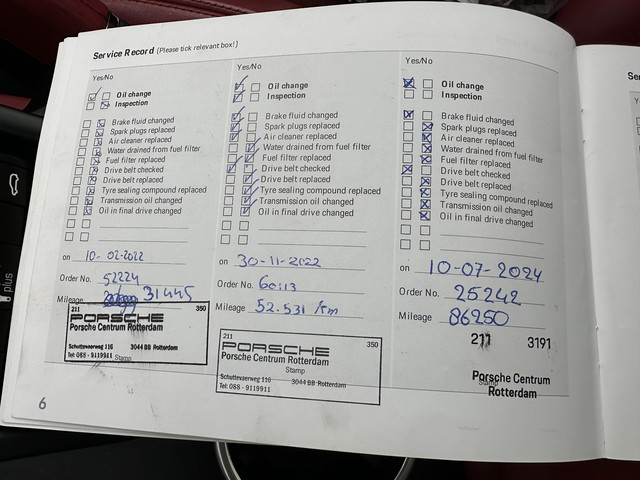 Service Record (Please tick relevant box!)
Yes/No
Oil change
Inspection
Brake fluid changed
Spark plugs replaced
Air cleaner replaced
Water drained from fuel filter
Fuel filter replaced
Drive belt checked
Drive belt replaced
Tyre sealing compound replaced
Transmission oil changed
Oil in final drive changed
on 10-02-2022
Order No. 52224
Mileage 31445
211 350
PORSCHE
Porsche Centrum Rotterdam
Schuttevaerweg 116 3044 BB Rotterdam
Tel: 088 - 9119911 Stamp
Yes/No
Oil change
Inspection
Brake fluid changed
Spark plugs replaced
Air cleaner replaced
Water drained from fuel filter
Fuel filter replaced
Drive belt checked
Drive belt replaced
Tyre sealing compound replaced
Transmission oil changed
Oil in final drive changed
on 30-11-2022
Order No. 60113
Mileage 52.531 km
211 350
PORSCHE
Porsche Centrum Rotterdam
Stamp
Schuttevaerweg 116 3044 BB Rotterdam
Tel: 088 - 9119911
Yes/No
Oil change
Inspection
Brake fluid changed
Spark plugs replaced
Air cleaner replaced
Water drained from fuel filter
Fuel filter replaced
Drive belt checked
Drive belt replaced
Tyre sealing compound replaced
Transmission oil changed
Oil in final drive changed
on 10-07-2024
Order No. 25242
Mileage 86250
211 3191
Porsche Centrum
Stamp
Rotterdam
6
plus